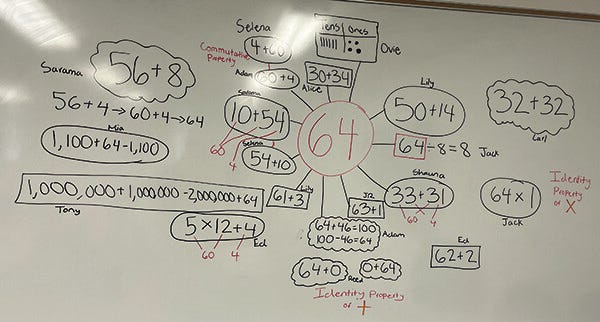 Selena
4+60
Commutative
Property
Adam
60+4
Tens
Ones
Ovie
30+34
Alice
Sarama
56+8
56+4→60+4→64
Mia
1,100+64-1,100
Sarama
10+54
60
4
Selena
54+10
64
Lily
50+14
32+32
Carl
64÷8=8
Jack
1,000,000+1,000,000-2,000,000+64
Tony
Lily
61+3
JR
63+1
Shauna
33+31
60
4
64×1
Jack
Identity
Property
of ×
5×12+4
Ed
60
4
64+46=100
100-46=64
Adam
Ed
62+2
64+0
Reed
0+64
Identity Property
of +